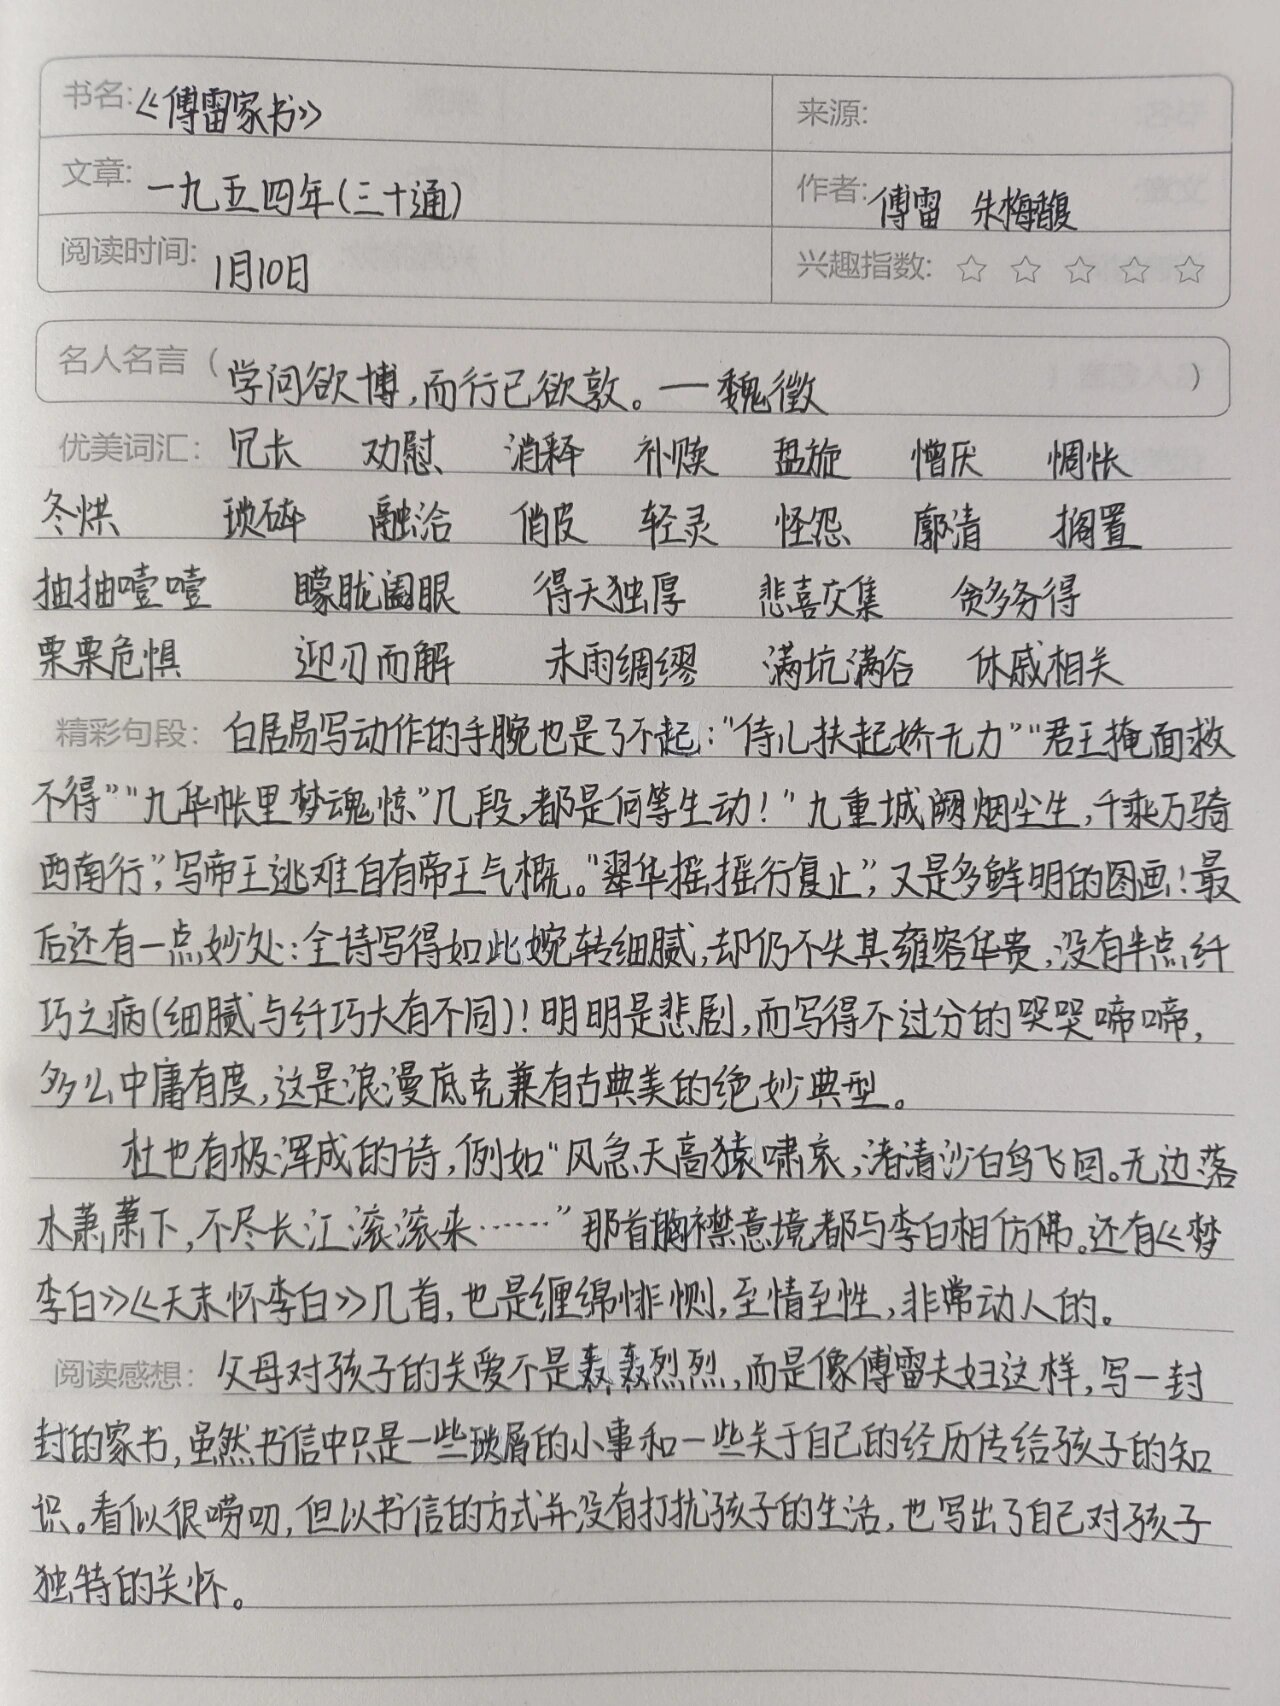 书名:《傅雷家书》 来源:
文章:一九五四年(三十通) 作者:傅雷 朱梅馥
阅读时间:1月10日 兴趣指数:☆ ☆ ☆ ☆ ☆
名人名言(学问欲博,而行己欲敦。——魏徵)
优美词汇:冗长 劝慰 消释 补赎 盘旋 憎厌 惆怅
冬烘 琐碎 融洽 俏皮 轻灵 怪怨 廓清 搁置
抽抽噎噎 朦胧阖眼 得天独厚 悲喜交集 贪多务得
栗栗危惧 迎刃而解 未雨绸缪 满坑满谷 休戚相关
精彩句段:白居易写动作的手腕也是了不起:“侍儿扶起娇无力”“君王掩面救
不得”“九华帐里梦魂惊”几段,都是何等生动!“九重城阙烟尘生,千乘万骑
西南行”,写帝王逃难自有帝王气概。“翠华摇摇行复止”,又是多鲜明的图画!最
后还有一点妙处:全诗写得如此婉转细腻,却仍不失其雍容华贵,没有半点纤
巧之病(细腻与纤巧大有不同)!明明是悲剧,而写得不过分的哭哭啼啼,
多么中庸有度,这是浪漫底克兼有古典美的绝妙典型。
杜也有极浑成的诗,例如“风急天高猿啸哀,渚清沙白鸟飞回。无边落
木萧萧下,不尽长江滚滚来……”那首胸襟意境都与李白相仿佛。还有《梦
李白》《天末怀李白》几首,也是缠绵悱恻,至情至性,非常动人的。
阅读感想:父母对孩子的关爱不是轰轰烈烈,而是像傅雷夫妇这样,写一封
封的家书,虽然书信中只是一些琐屑的小事和一些关于自己的经历传给孩子的知
识。看似很唠叨,但以书信的方式并没有打扰孩子的生活,也写出了自己对孩子
独特的关怀。